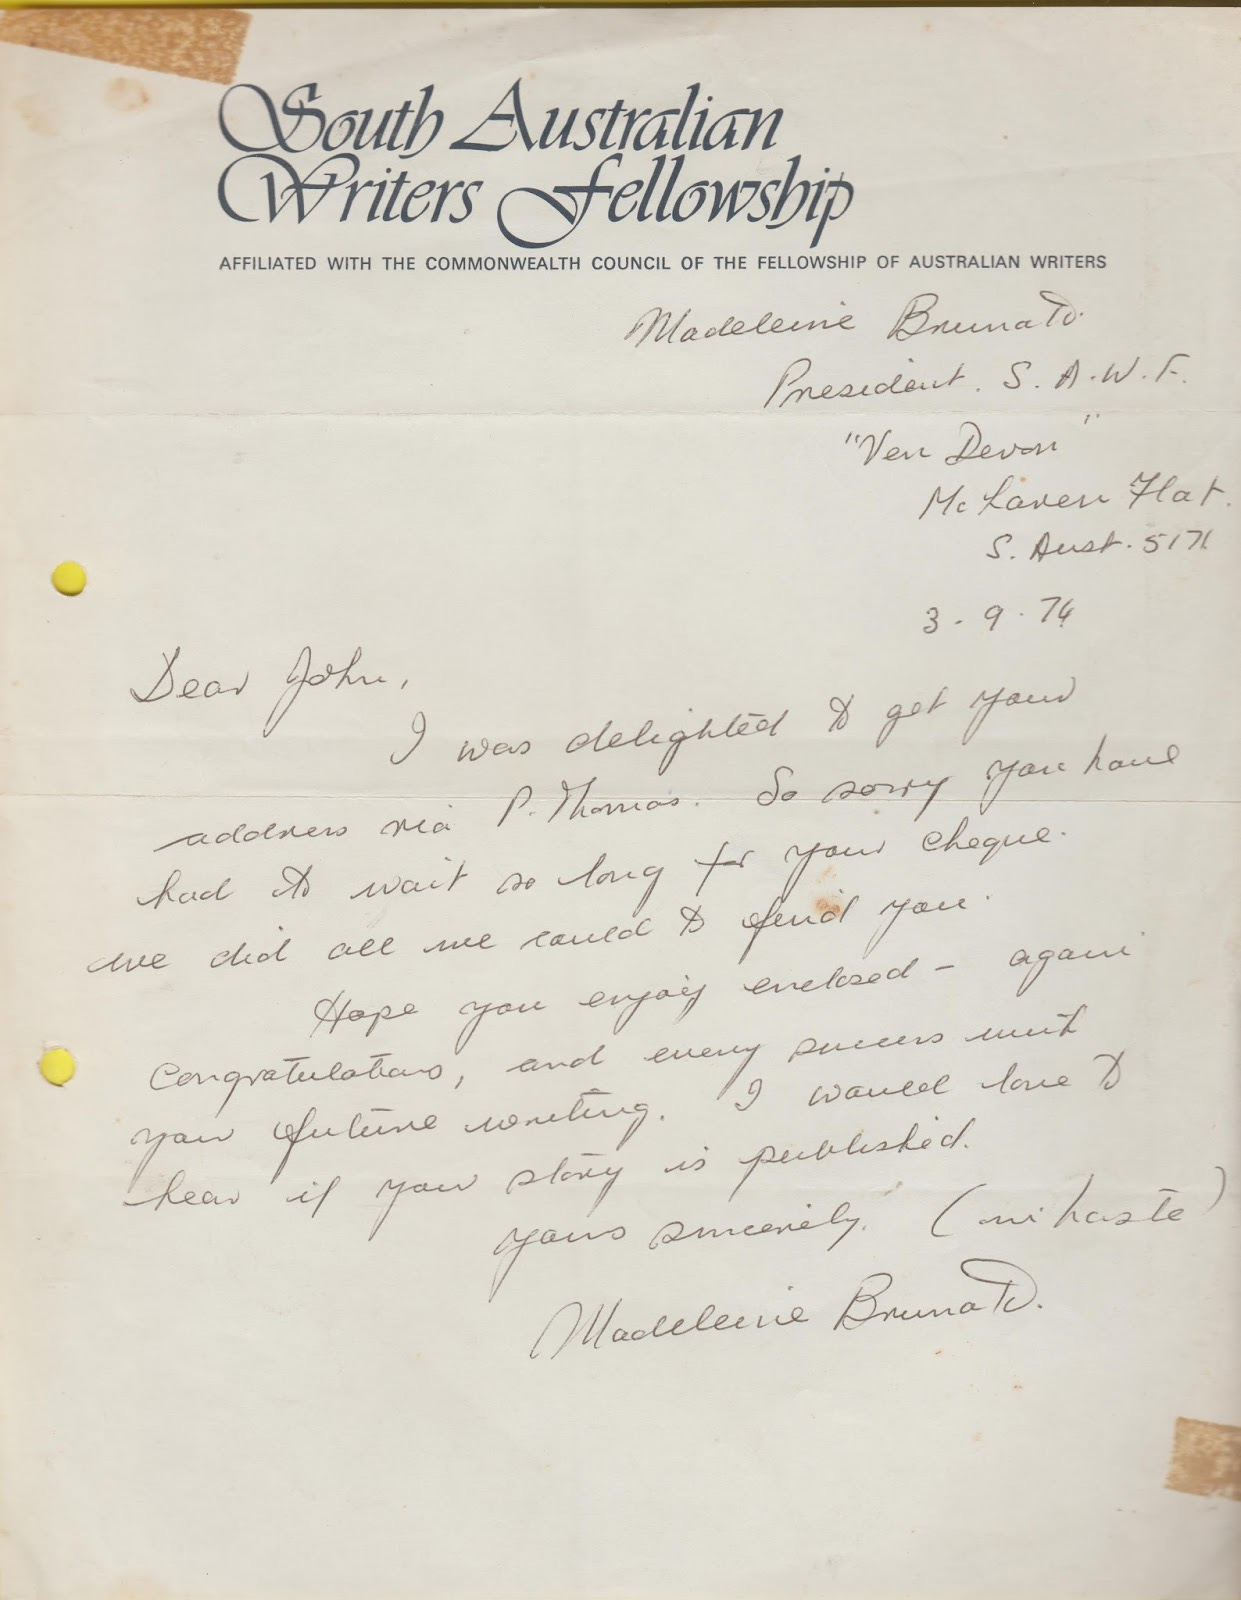 South Australian
Writers Fellowship
AFFILIATED WITH THE COMMONWEALTH COUNCIL OF THE FELLOWSHIP OF AUSTRALIAN WRITERS
Madeleine Brunato.
President. S. A. W. F.
"Ven Devon"
Mc Laren Flat.
S. Aust. 5171
3 - 9 - 74
Dear John,
I was delighted to get your
address via P. Thomas. So sorry you have
had to wait so long for your cheque.
we did all we could to find you.
Hope you enjoy enclosed - again
congratulations, and every success with
your future writing. I would love to
hear if your story is published.
yours sincerely. (in haste)
Madeleine Brunato.